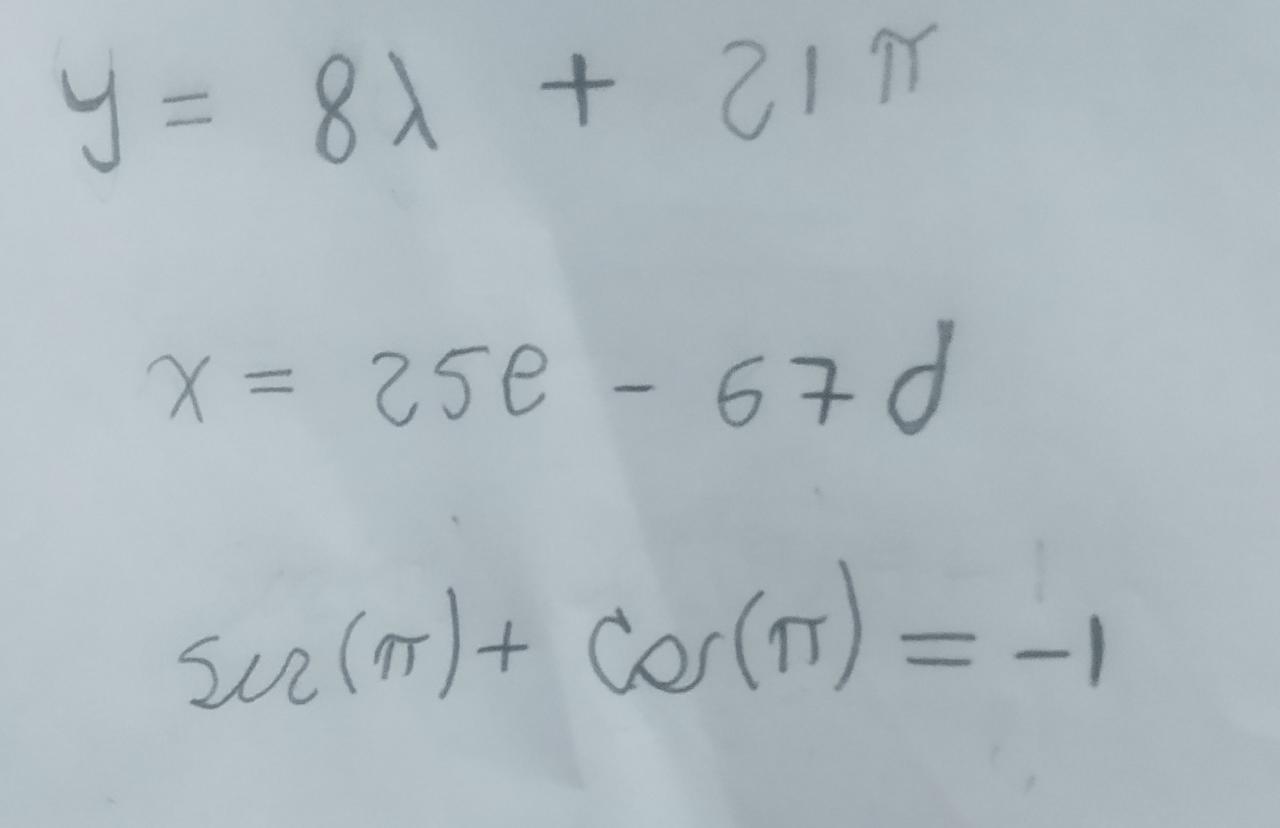 y = 8λ + 21π
x = 25e - 67d
sin(π) + cos(π) = -1